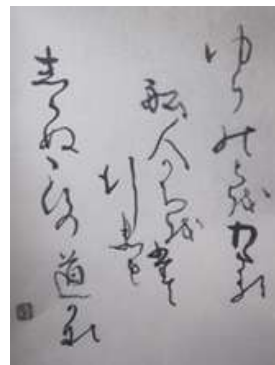 ゆらのとをわたる
船人かぢをたえ
行へも
志らぬ恋の道かな